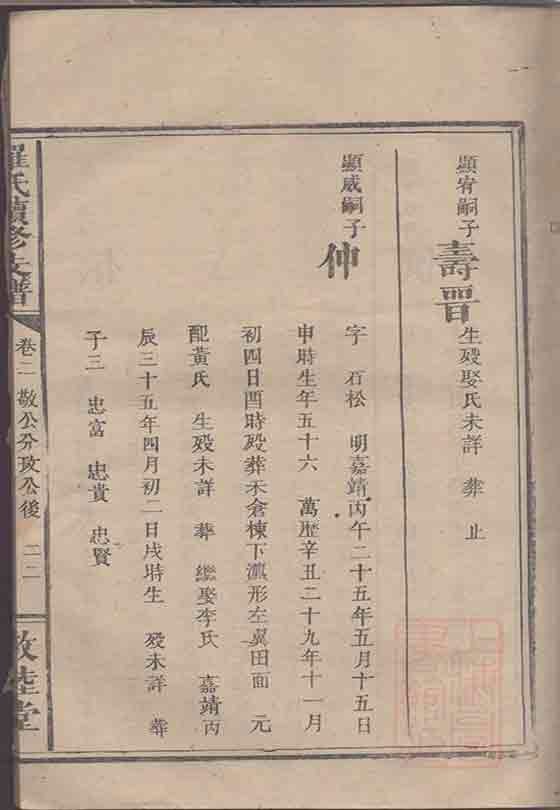 顯宥嗣子
壽晋
生殁娶氏未詳 葬 止
顯威嗣子
仲
字 石松 明嘉靖丙午二十五年五月十五日
申時生年五十六 萬歷辛丑二十九年十一月
初四日酉時殁葬禾倉楝下瀛形左翼田面 元
配黃氏 生殁未詳 葬 繼娶李氏 嘉靖丙
辰三十五年四月初二日戌時生 殁未詳 葬
子三 忠富 忠貴 忠賢
羅氏續修支譜
卷二 敬公分政公後 二二
敦睦堂